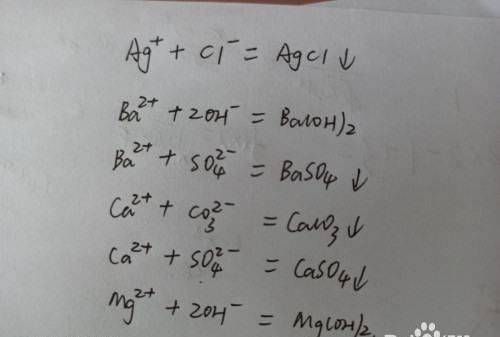 Ag⁺ + Cl⁻ = AgCl ↓
Ba²⁺ + 2OH⁻ = Ba(OH)₂
Ba²⁺ + SO₄²⁻ = BaSO₄ ↓
Ca²⁺ + CO₃²⁻ = CaCO₃ ↓
Ca²⁺ + SO₄²⁻ = CaSO₄ ↓
Mg²⁺ + 2OH⁻ = Mg(OH)₂